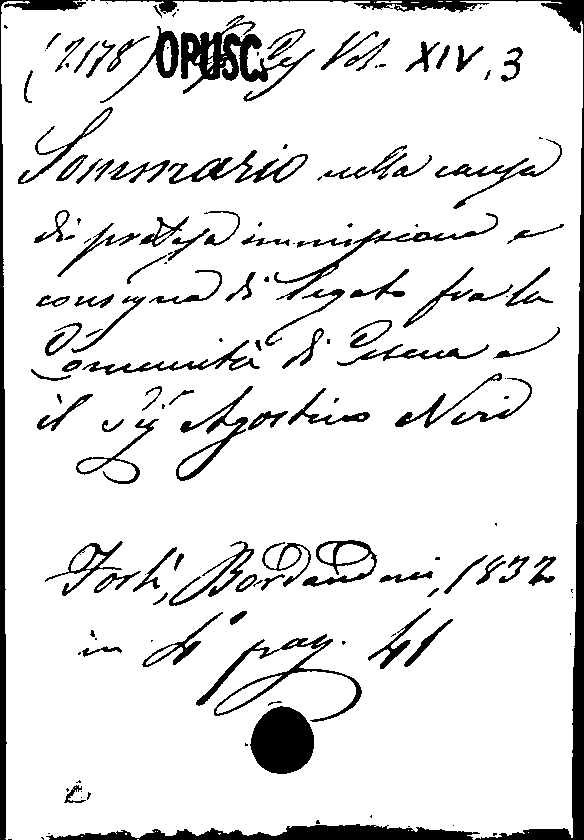 (2178) OPUSC. Vol. XIV, 3
Sommario nella causa
di pretesa immissione e
consegna di legato fra la
Comunità di Cesena e
il Sigr Agostino Neri
Forlì, Bordandini, 1832
in 4° pag. 41